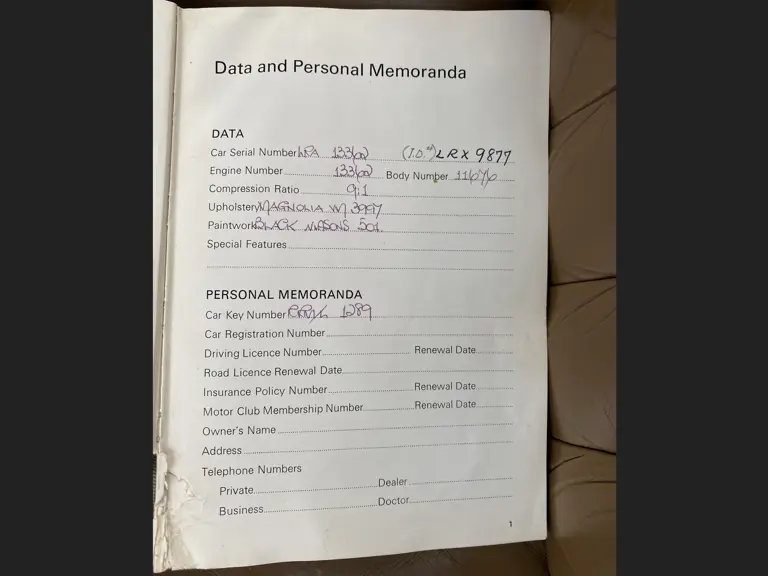 Data and Personal Memoranda
DATA
Car Serial Number LRA 13362 (I.D. LRX 9877
Engine Number 13362 Body Number 11676
Compression Ratio 9:1
Upholstery MAGNOLIA VM 3997
Paintwork BLACK MASONS 501.
Special Features
PERSONAL MEMORANDA
Car Key Number 1289
Car Registration Number
Driving Licence Number Renewal Date
Road Licence Renewal Date
Insurance Policy Number Renewal Date
Motor Club Membership Number Renewal Date
Owner's Name
Address
Telephone Numbers
Private Dealer
Business Doctor
1